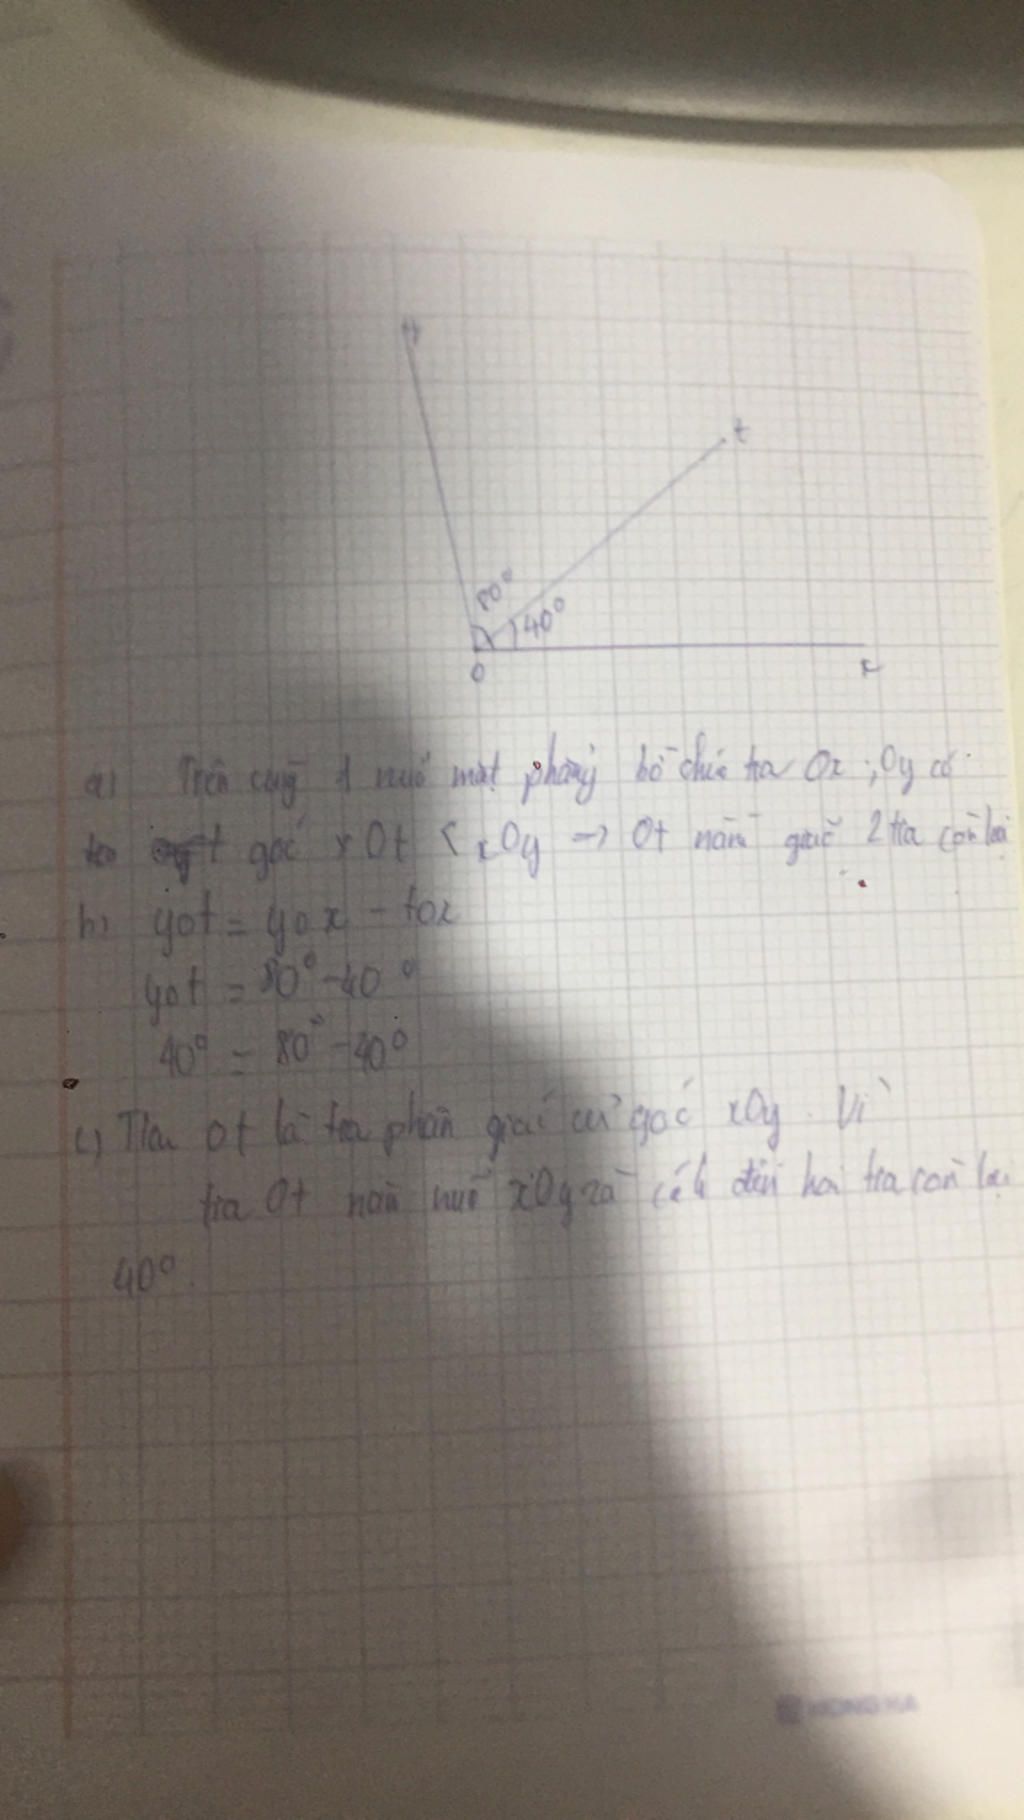 y
t
80°
40°
O
x
a) Trên cùng 1 nuả mặt phẳng bờ chứa tia Ox; Oy có
góc xOt < xOy → Ot nằm giữa 2 tia còn lại
b) yot = yox - tox
yot = 80° - 40°
40° = 80° - 40°
c) Tia Ot là tia phân giác củ góc xOy. Vì
tia Ot nằm xOy và cách đến hai tia còn lại
40°.
HONG HA